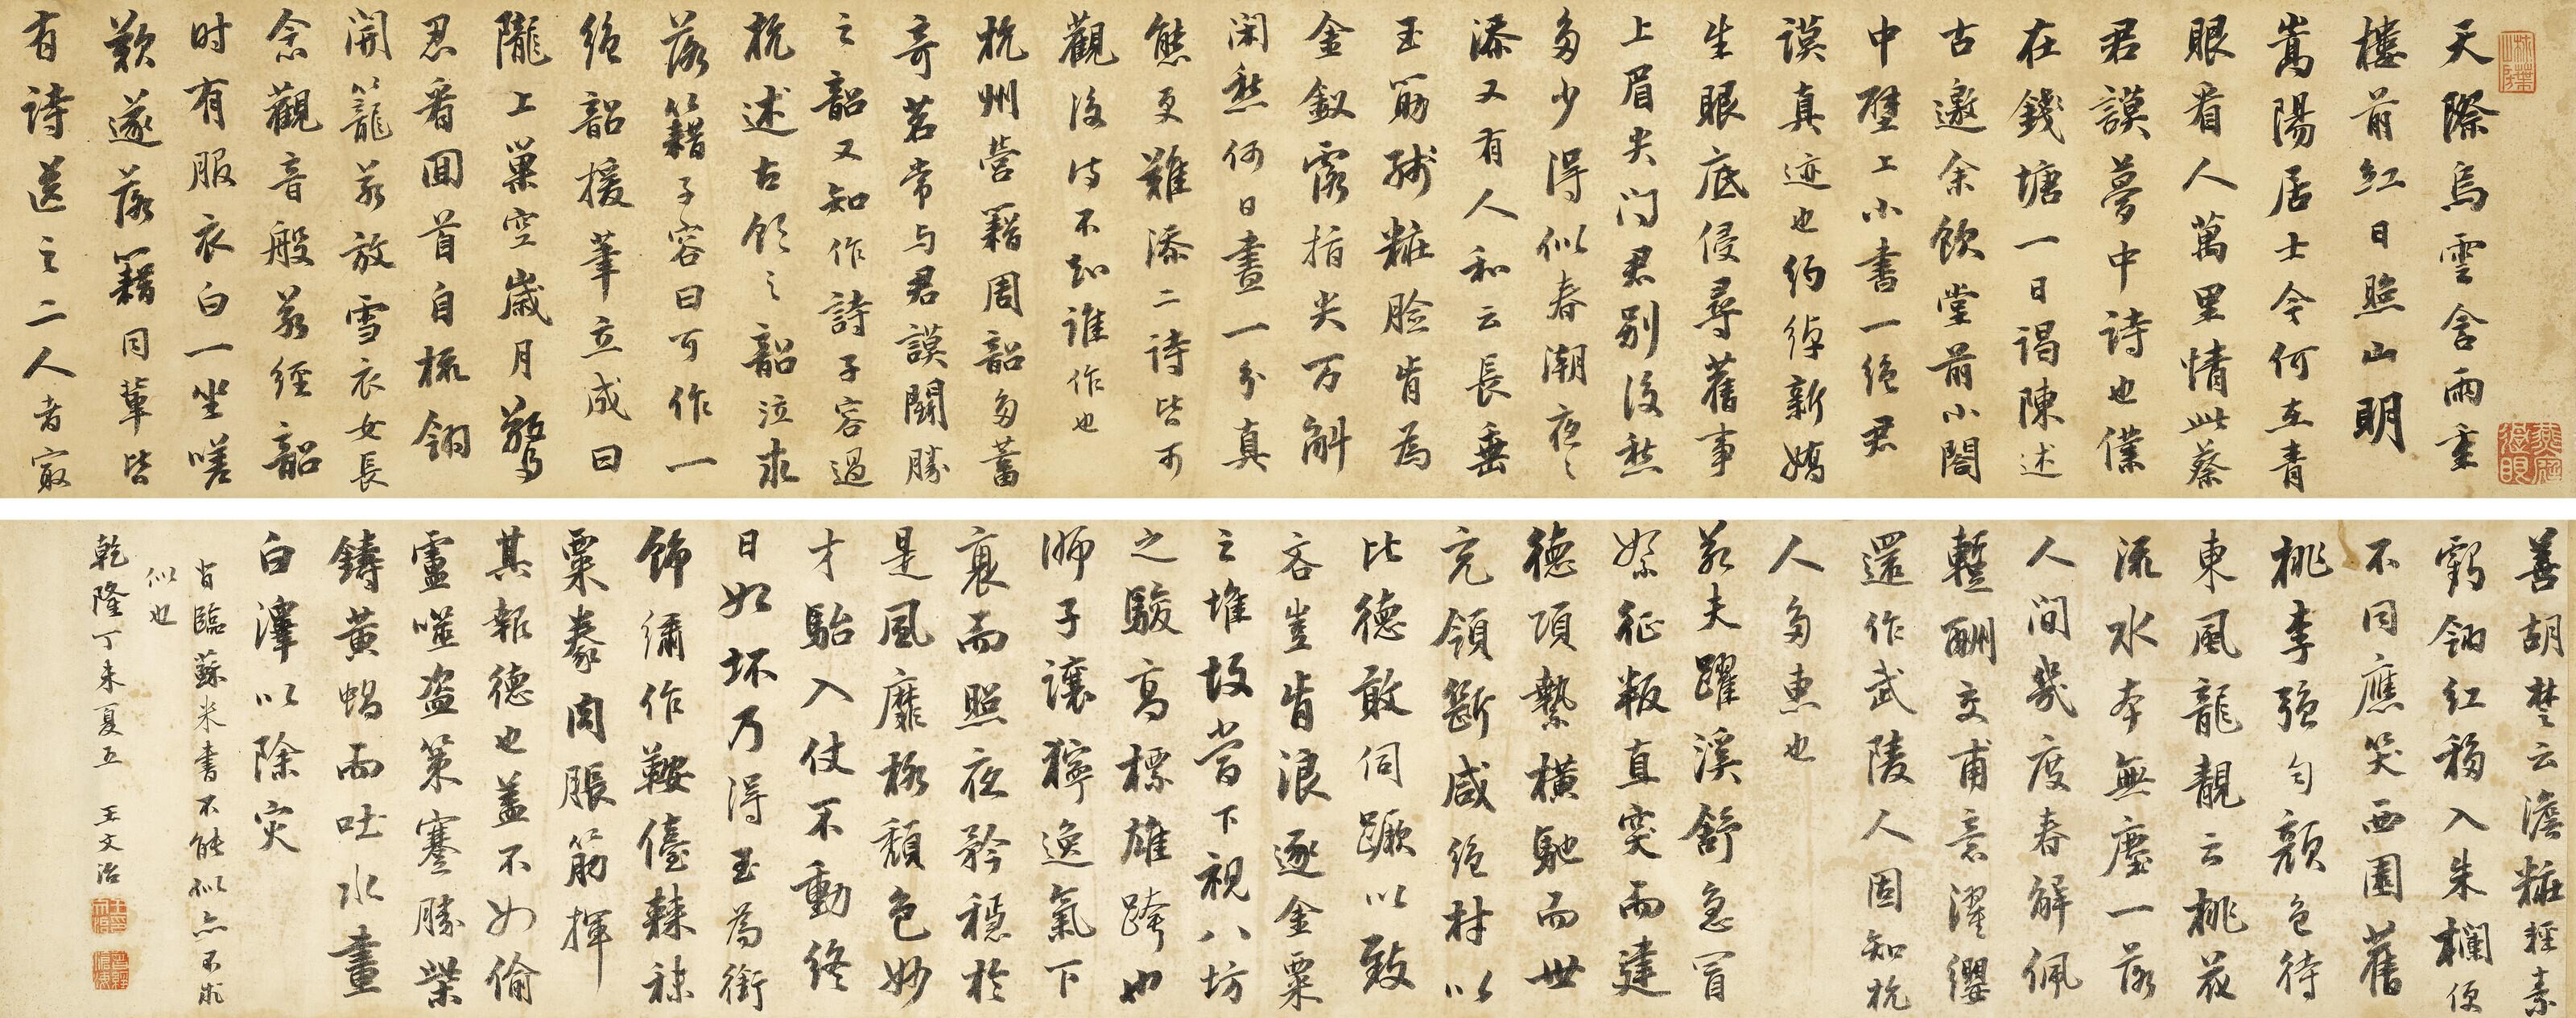 天際烏雲含雨重
樓前紅日照山明
嵩陽居士今何在青
眼看人萬里情此蔡
君謨夢中詩也僕
在錢塘一日謁陳述
古邀余飲堂前小閤
中壁上小書一絕君
謨真迹也約綽新嬌
生眼底侵尋舊事
上眉尖問君別後愁
多少得似春潮夜夜
添又有人和云長垂
玉筯殘粧臉肯為
金釵露指尖万斛
閑愁何日盡一分真
態更難添二詩皆可
觀後詩不知誰作也
杭州營籍周韶多蓄
奇茗常与君謨鬪勝
之韶又知作詩子容過
杭述古飲之韶泣求
落籍子容曰可作一
絕韶援筆立成曰
隴上巢空歲月驚
忍看囬首自梳翎
開籠若放雪衣女長
念觀音般若經韶
时有服衣白一坐嗟
歎遂落籍同輩皆
有詩送之二人者宼
善胡楚云澹粧輕素
鶴翎紅移入朱欄便
不同應笑西園舊
桃李強匀顏色待
東風龍靚云桃花
流水本無塵一落
人間幾度春解佩
蹔酬交甫意濯纓
還作武陵人固知杭
人多惠也
若夫躍溪舒急冒
絮征叛直突而建
德項縶橫馳而世
充領斷咸絕材以
比德敢伺蹶以致
吝豈肯浪逐金粟
之堆故當下視八坊
之駿高標雄跨也
師子讓獰逸氣下
衰而照夜矜穩於
是風靡格頹色妙
才駘入仗不動終
日如坏乃得玉為銜
飾繡作鞍儓棘秣
粟豢肉脹筋揮
其報德也蓋不如偷
盧噬盜策蹇勝柴
鑄黃蝎而吐水畫
白澤以除灾
肯臨蘇米書不能似亦不求
似也
乾隆丁未夏五 王文治